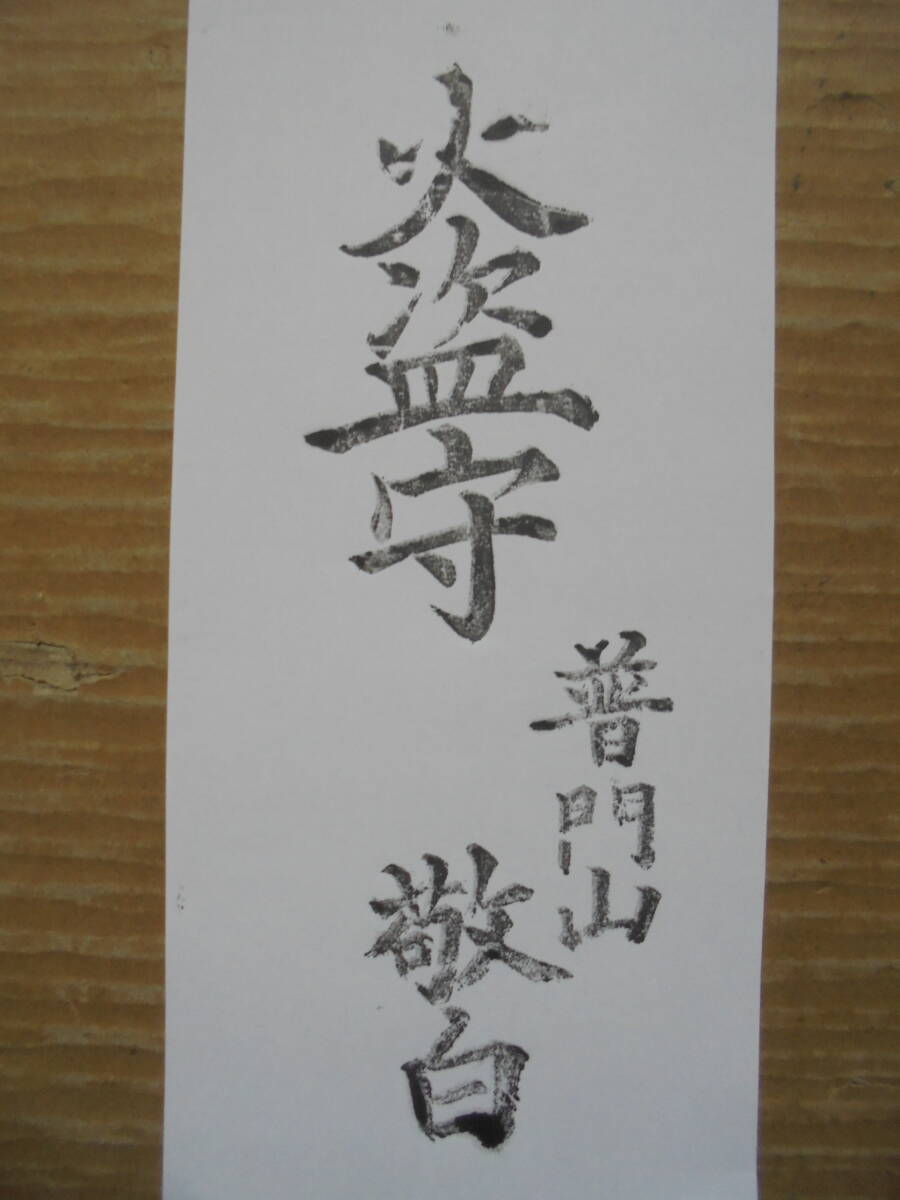 火盗守
普門山
敬白